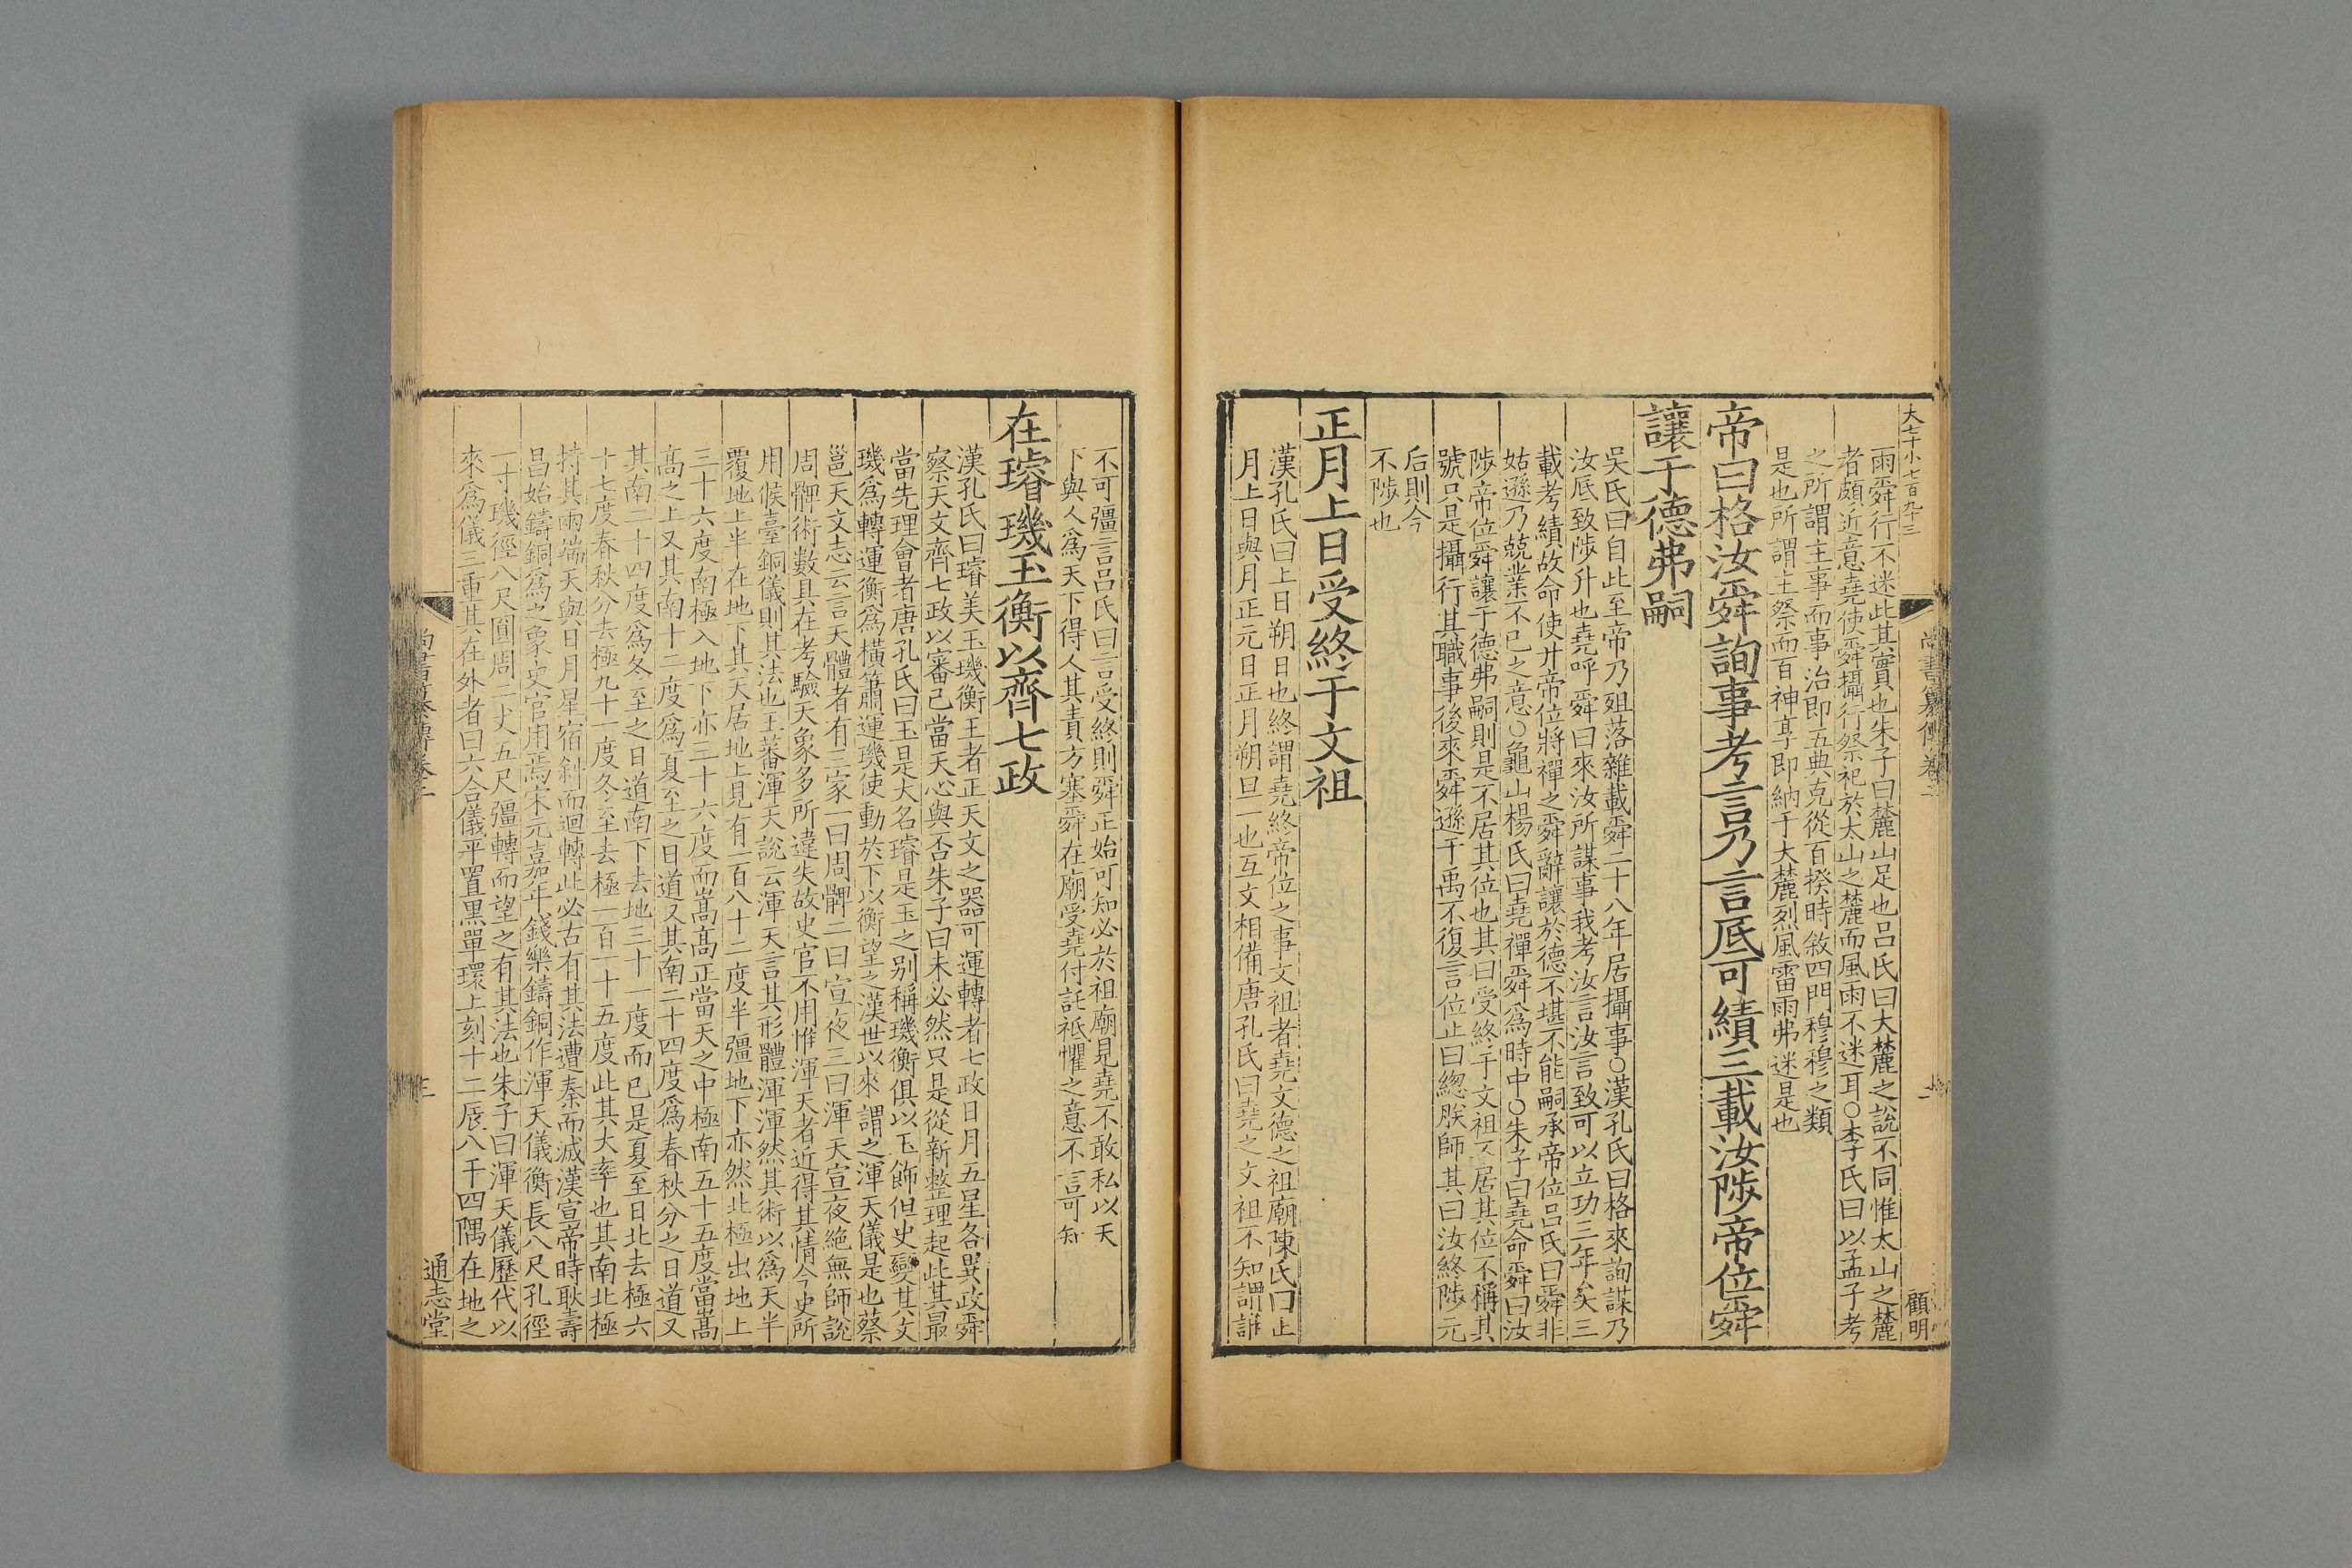 大七十小七百九十三
尚書纂傳卷二
二
顧明
雨舜行不迷此其實也朱子曰麓山足也呂氏曰大麓之說不同惟太山之麓
者頗近意堯使舜攝行祭祀於太山之麓而風雨不迷耳○李氏曰以孟子考
之所謂主事而事治即五典克從百揆時敘四門穆穆之類
是也所謂主祭而百神享即納于大麓烈風雷雨弗迷是也
帝曰格汝舜詢事考言乃言底可績三載汝陟帝位舜
讓于德弗嗣
吳氏曰自此至帝乃殂落雜載舜二十八年居攝事○漢孔氏曰格來詢謀乃
汝底致陟升也堯呼舜曰來汝所謀事我考汝言汝言致可以立功三年矣三
載考績故命使升帝位將禪之舜辭讓於德不堪不能嗣承帝位呂氏曰舜非
姑遜乃兢業不已之意○龜山楊氏曰堯禪舜爲時中○朱子曰堯命舜曰汝
陟帝位舜讓于德弗嗣則是不居其位也其曰受終于文祖不居其位不稱其
號只是攝行其職事後來舜遜于禹不復言位止曰緫朕師其曰汝終陟元
后則今
不陟也
正月上日受終于文祖
漢孔氏曰上日朔日也終謂堯終帝位之事文祖者堯文德之祖廟陳氏曰正
月上日與月正元日正月朔旦一也互文相備唐孔氏曰堯之文祖不知謂誰
不可彊言呂氏曰言受終則舜正始可知必於祖廟見堯不敢私以天
下與人爲天下得人其責方塞舜在廟受堯付託祗懼之意不言可知
在璿璣玉衡以齊七政
漢孔氏曰璿美玉璣衡王者正天文之器可運轉者七政日月五星各異政舜
察天文齊七政以審己當天心與否朱子曰未必然只是從新整理起此其最
當先理會者唐孔氏曰玉是大名璿是玉之别稱璣衡俱以玉飾但史變其文
璣爲轉運衡爲橫簫運璣使動於下以衡望之漢世以來謂之渾天儀是也蔡
邕天文志云言天體者有三家一曰周髀二曰宣夜三曰渾天宣夜絶無師說
周髀術數具在考驗天象多所違失故史官不用惟渾天者近得其情今史所
用候臺銅儀則其法也王蕃渾天說云渾天言其形體渾渾然其術以爲天半
覆地上半在地下其天居地上見有一百八十二度半彊地下亦然北極出地上
三十六度南極入地下亦三十六度而嵩高正當天之中極南五十五度當嵩
高之上又其南十二度爲夏至之日道又其南二十四度爲春秋分之日道又
其南二十四度爲冬至之日道南下去地三十一度而已是夏至日北去極六
十七度春秋分去極九十一度冬至去極一百一十五度此其大率也其南北極
持其兩端天與日月星宿斜而迴轉此必古有其法遭秦而滅漢宣帝時耿壽
昌始鑄銅爲之象史官用焉宋元嘉年錢樂鑄銅作渾天儀衡長八尺孔徑
一寸璣徑八尺圓周二丈五尺彊轉而望之有其法也朱子曰渾天儀歷代以
來爲儀三重其在外者曰六合儀平置黑單環上刻十二辰八干四隅在地之
尚書纂傳卷二
三
通志堂